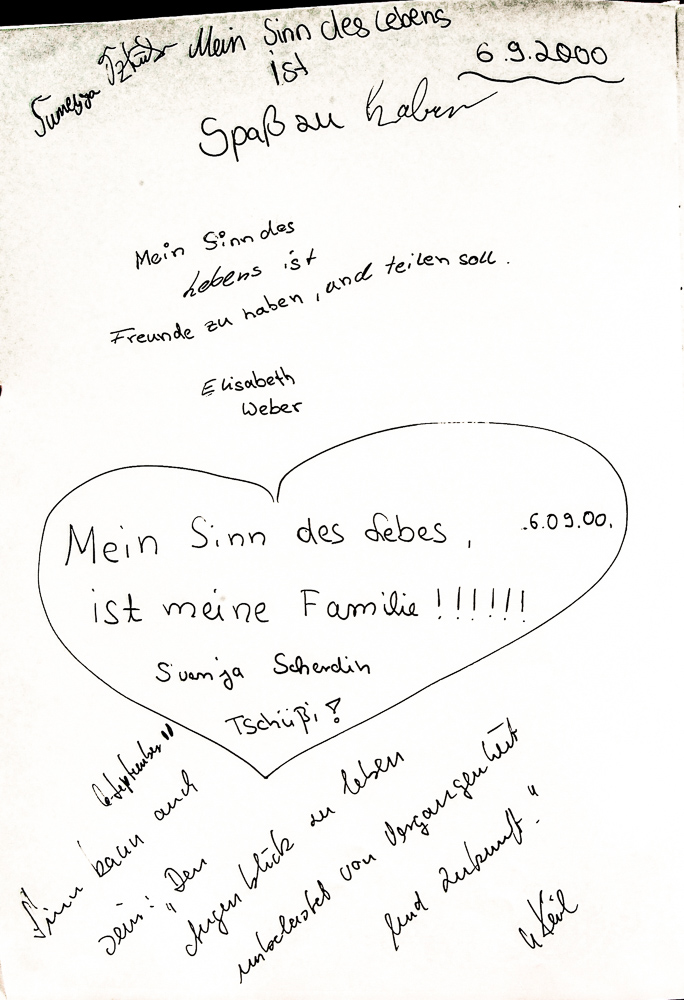 Mein Sinn des Lebens
ist
6.9.2000
Spaß zu haben
Mein Sinn des
Lebens ist
Freunde zu haben, und teilen soll.
Elisabeth
Weber
Mein Sinn des Lebes,
.6.09.00.
ist meine Familie !!!!!!
Svenja Scherdin
Tschüßi!
6. September
Sinn kann auch
sein: Den
"Augenblick zu leben
unbelastet von Vergangenheit
und Zukunft."
Keil